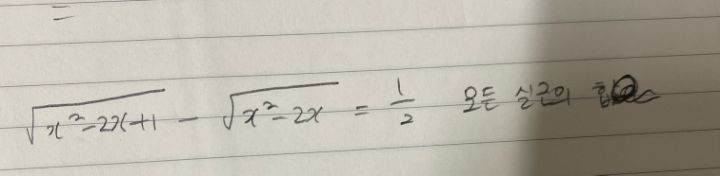 √(x²-2x+1) - √(x²-2x) = 1/2 모든 실근의 합